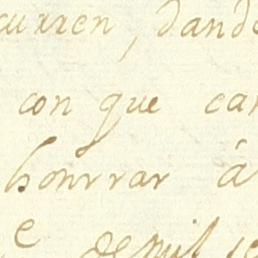 curren, dand
con que ca
honrrar á
e de mil